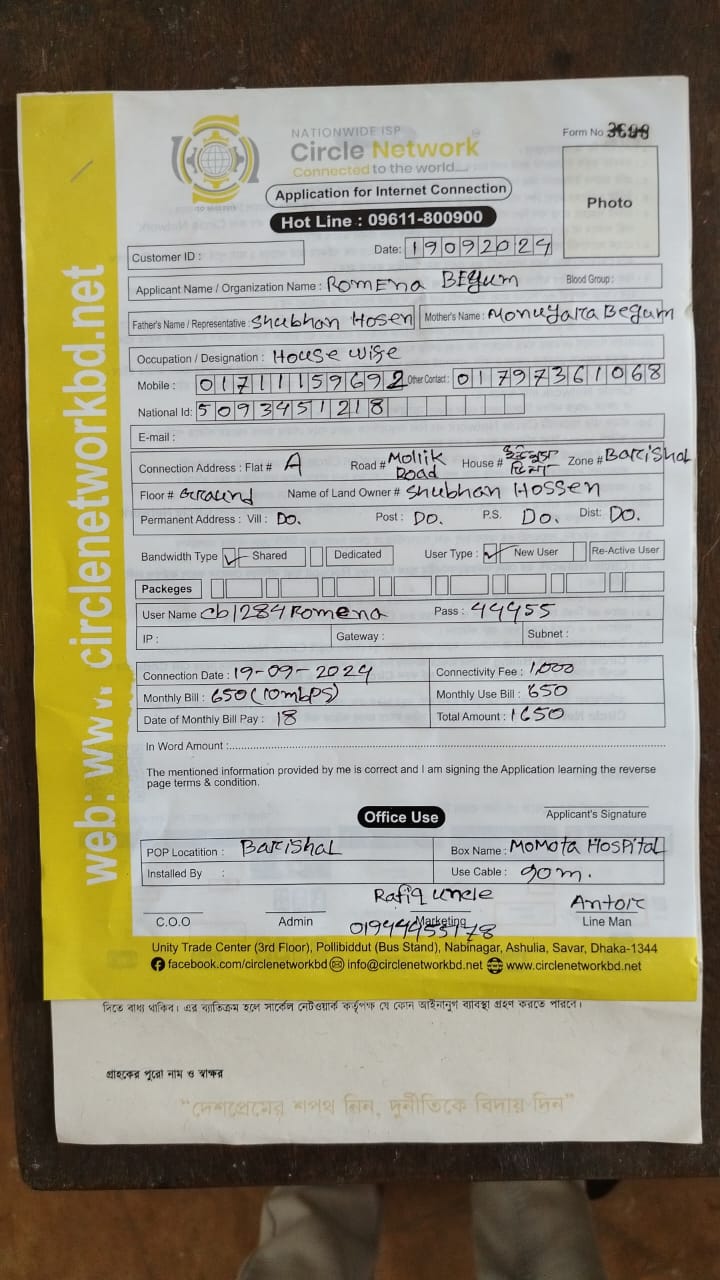 web: www. circlenetworkbd.net
NATIONWIDE ISP
Circle Network
Connected to the world....
Form No
Application for Internet Connection
Hot Line : 09611-800900
Photo
Customer ID :
Date: 19092024
Applicant Name / Organization Name : Romena Begum Blood Group :
Father's Name / Representative : Shubhan Hosen Mother's Name : Monuyara Begum
Occupation / Designation : House wife
Mobile : 01711159692 Other Contact : 01797361068
National Id: 5093451218
E-mail :
Connection Address : Flat # A Road # Mollik Road House # Zone # Barishal
Floor # Ground Name of Land Owner # Shubhan Hossen
Permanent Address : Vill : Do. Post : Do. P.S. Do. Dist: Do.
Bandwidth Type ✓ Shared Dedicated User Type : ✓ New User Re-Active User
Packeges
User Name cb1284Romena Pass : 44455
IP : Gateway : Subnet :
Connection Date : 19-09-2024 Connectivity Fee : 1,000
Monthly Bill : 650 (10mbps) Monthly Use Bill : 650
Date of Monthly Bill Pay : 18 Total Amount : 1650
In Word Amount :
The mentioned information provided by me is correct and I am signing the Application learning the reverse
page terms & condition.
Applicant's Signature
Office Use
POP Locatition : Barishal Box Name : Momota Hospital
Installed By : Use Cable : 90m.
Rafiq uncle Antor
C.O.O Admin Marketing Line Man
Unity Trade Center (3rd Floor), Pollibiddut (Bus Stand), Nabinagar, Ashulia, Savar, Dhaka-1344
facebook.com/circlenetworkbd info@circlenetworkbd.net www.circlenetworkbd.net
দিতে বাধ্য থাকিব। এর ব্যতিক্রম হলে সার্কেল নেটওয়ার্ক কর্তৃপক্ষ যে কোন আইনানুগ ব্যবস্থা গ্রহণ করতে পারবে।
গ্রাহকের পুরো নাম ও স্বাক্ষর
"দেশপ্রেমের শপথ নিন, দুর্নীতিকে বিদায় দিন"